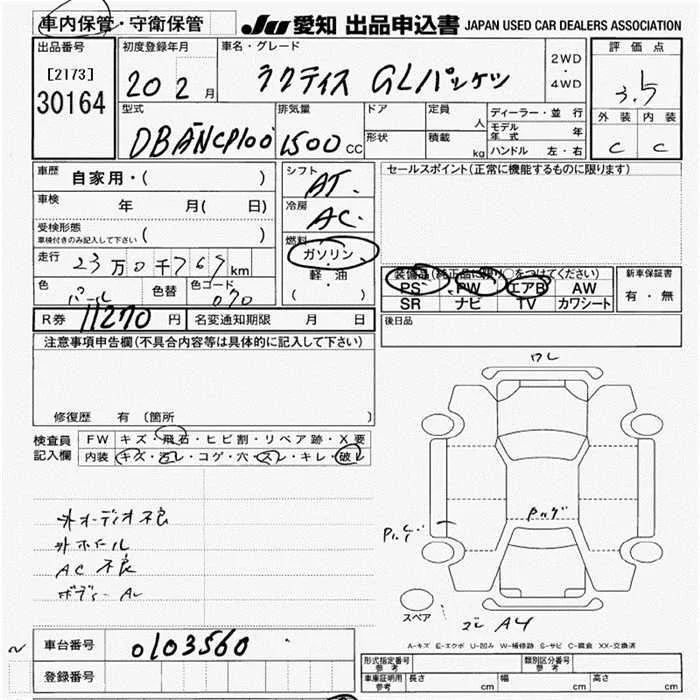 車内保管・守衛保管
JU 愛知 出品申込書 JAPAN USED CAR DEALERS ASSOCIATION
出品番号
[2173]
30164
初度登録年月
20 2 月
車名・グレード
ラクティス GLパッケツ
2WD
・
4WD
評価点
3.5
外装 内装
C C
型式
DBANCP100
排気量
1500 CC
ドア
形状
定員
人
積載
kg
ディーラー・並行
モデル年式 年
ハンドル 左・右
車歴 自家用・( )
車検 年 月( 日)
受検形態 ( )
車検付きのみ記入して下さい
走行 23万0千769km
色 パール 色替 色コード 070
シフト AT.
冷房 AC.
燃料
ガソリン
・
軽・油
( )
セールスポイント(正常に機能するものに限ります)
装備品(純正品に限り○をつけてください)
PS PW エアB AW
SR ナビ TV カワシート
新車保証書
有・無
R券 11270 円 名変通知期限 月 日
後日品
注意事項申告欄(不具合内容等は具体的に記入して下さい)
修復歴 有 〔箇所
検査員記入欄
FW キズ・飛石・ヒビ割・リペア跡・X要
内装 キズ・汚レ・コゲ・穴・スレ・キレ・破レ
外オーディオ不良
外ホイール
AC不良
ボディー
ワレ
スペア
A-キズ E-エクボ U-凹み W-補修跡 S-サビ C-腐食 XX-交換済
車台番号 0103560
登録番号
形式指定番号 参考
類別区分番号 参考
車庫証明用 参考 長さ cm 幅 cm 高さ cm